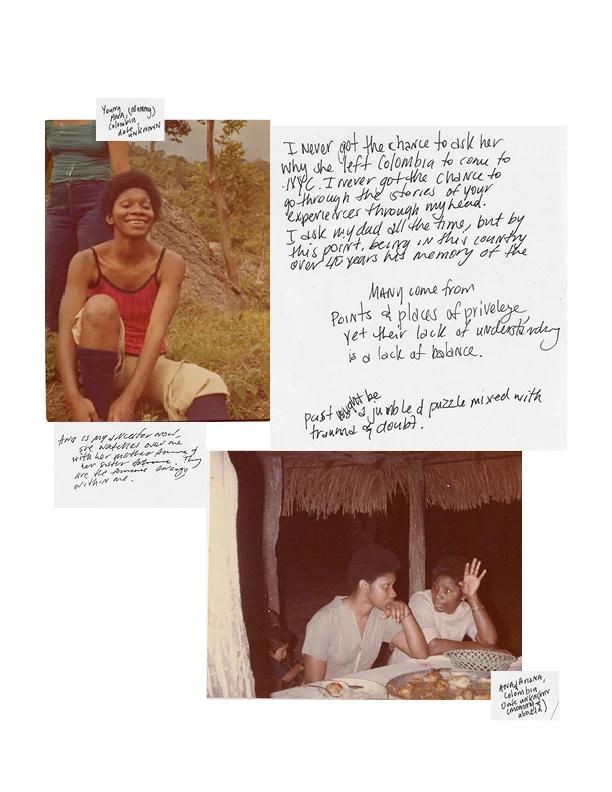 Young
ANA, (Mommy)
Colombia,
date
unknown
I never got the chance to ask her
why she left Colombia to come to
NYC. I never got the chance to
go through the stories of your
experiences through my head.
I ask my dad all the time, but by
this point, being in this country
over 45 years his memory of the
Many come from
Points & places of privelege,
yet their lack of understanding
is a lack of balance.
past might be a jumbled puzzle mixed with
trauma & doubt.
Ana is my ancestor now,
she watches over me
with her mother &
her sister They
are the energy
within me.
ANA & Ariana,
Colombia
Date unknown
(Mommy &
abuela)